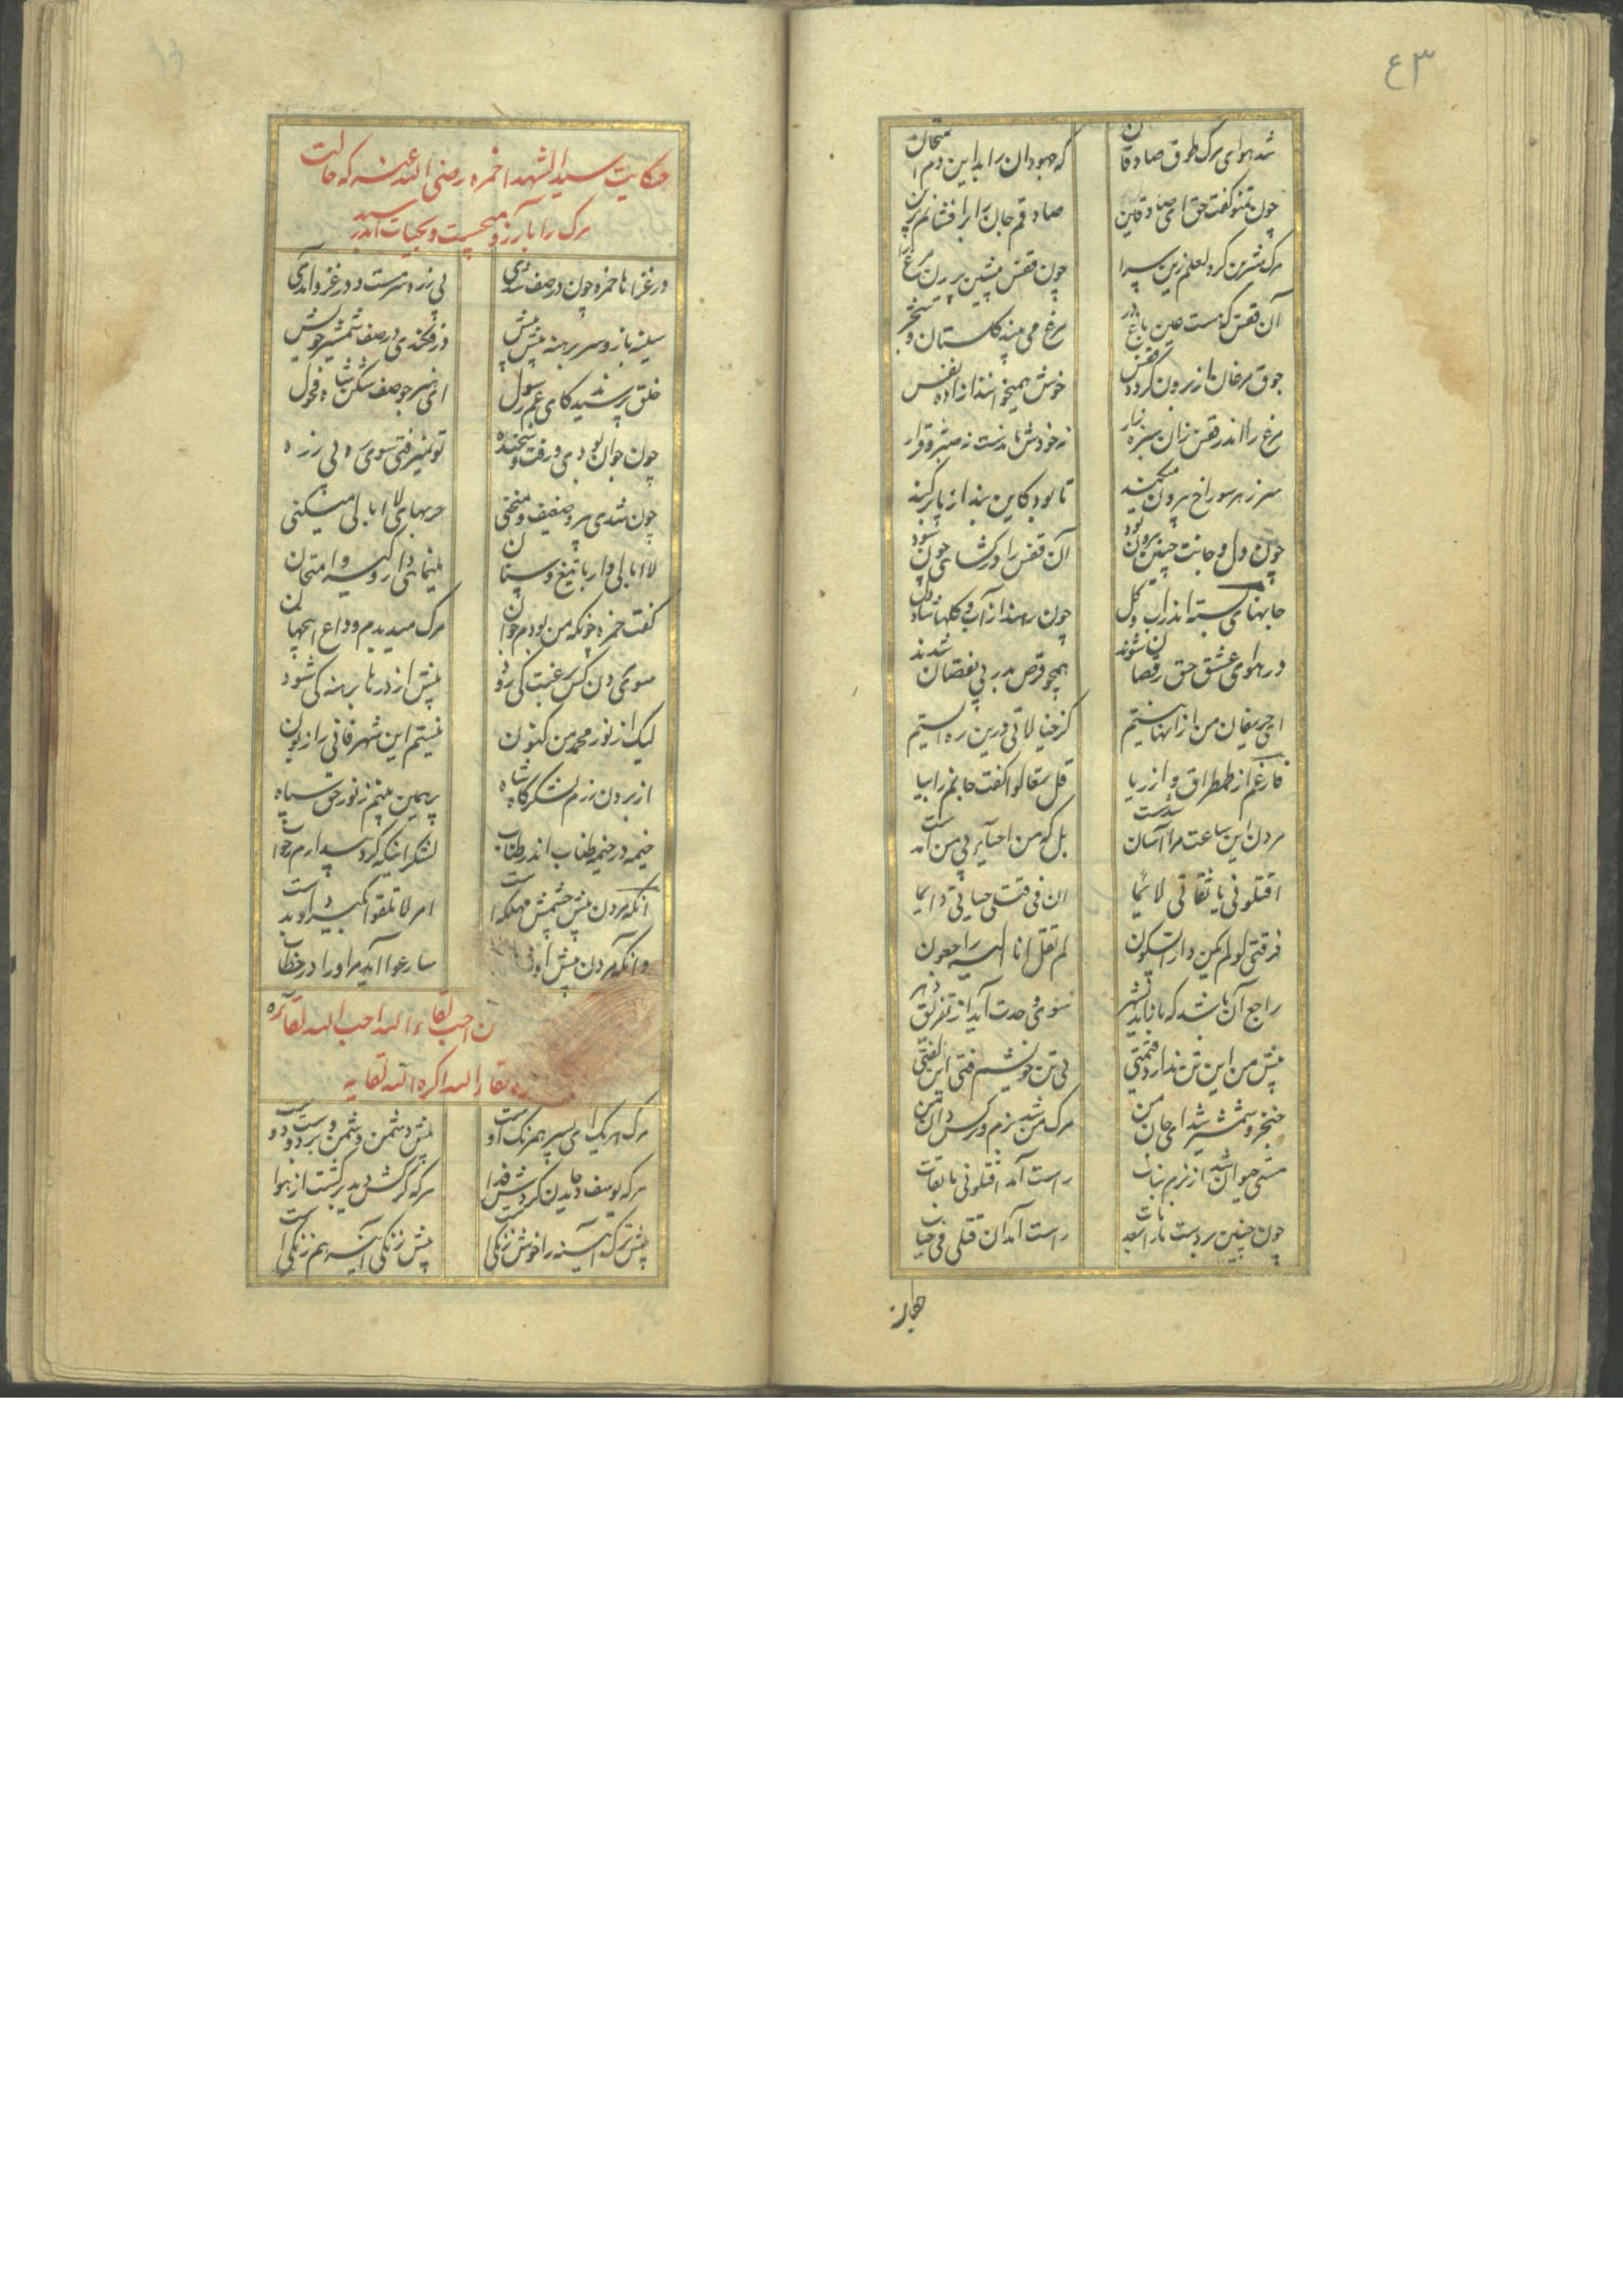 ٤٣
شد هوای مرگ طوق صادقان
که جهودان را بد این دم امتحان
چون تمنوا گفت حق ای صادقین
صادقم جان را برافشانم برین
مرگ شیرین کرد نقلم زین سرا
چون قفس هشتن پریدن مرغ را
آن قفس که هست عین باغ در
مرغ می بیند گلستان و شجر
جوق مرغان از برون گرد قفس
خوش همیخوانند از آزادی نفس
مرغ را اندر قفس زان سبزه زار
نه خورش ماندست نه صبر و قرار
سر ز هر سوراخ بیرون میکند
تا بود کاین بند از پا بر کند
چون دل و جانت چنین بیرون بود
آن قفس را در گشای چون شود
جانهای بسته اندر آب و گل
چون رهند از آب و گلها شاد دل
در هوای عشق حق رقصان شوند
همچو قرص بدر بی نقصان شدند
ای حریفان من از آنها نیستم
کز خیالاتی درین ره ایستم
فارغم از طمطراق و از ریا
قل تعالوا گفت جانم را بیا
مردن این ساعت مرا آسان شدست
بل که من احیا پی من آمدست
اقتلونی یا ثقاتی لائما
ان فی قتلی حیاتی دائما
فرقتی لو لم یکن دار السکون
لم تقل انا الیه راجعون
راجع آن باشد که باز آید بشهر
سوی وحدت آید از تفریق دهر
پیش من این تن ندارد قیمتی
بی تن خویشم فتی ابن الفتی
خنجر و شمشیر شد ای جان من
مرگ من شد بزم و نرگسدان من
راست آمد اقتلونی یا ثقات
راست آمد ان قتلی فی حیات
حکایت سید الشهدا حمزه رضی الله عنه که حالت
مرگ را بآرزو میجست و بحیات ابدی رسید
در غزاها حمزه چون در صف شدی
بی زره سرمست در غزو آمدی
سینه باز و سر برهنه پیش پیش
در فکندی در صف شمشیر خویش
خلق پرسیدند کای عم رسول
ای هژبر صف شکن شاه فحول
چون جوان بودی و زفت و سخت زه
تو نمیرفتی سوی صف بی زره
چون شدی پیر و ضعیف و منحنی
پردهای لا ابالی میزنی
لا ابالی وار با تیغ و سنان
مینمایی دار و گیر و امتحان
گفت حمزه چونکه من بودم جوان
مرگ میدیدم وداع این جهان
سوی مردن کس برغبت کی رود
پیش اژدرها برهنه کی شود
لیک از نور محمد من کنون
نیستم این شهر فانی را زبون
از برون رزم لشکرگاه شاه
پر همین بینم ز نور حق سپاه
خیمه در خیمه طناب اندر طناب
شکر آنکه کرد بیدارم ز خواب
آنکه مردن پیش چشمش تهلکه است
امر لا تلقوا بگیرد او بدست
وانکه مردن پیش او
سارعوا آید مر او را در خطاب
من احب لقاء الله احب الله لقائه
کره لقاء الله اکره الله لقائه
مرگ هر یک ای پسر همرنگ اوست
پیش دشمن دشمن و بر دوست دوست
هر که یوسف دید جان کردش فدا
هر که گرگش دید برگشت از هوا
پیش ترک آیینه را خوش رنگی است
پیش زنگی آینه هم زنگی است